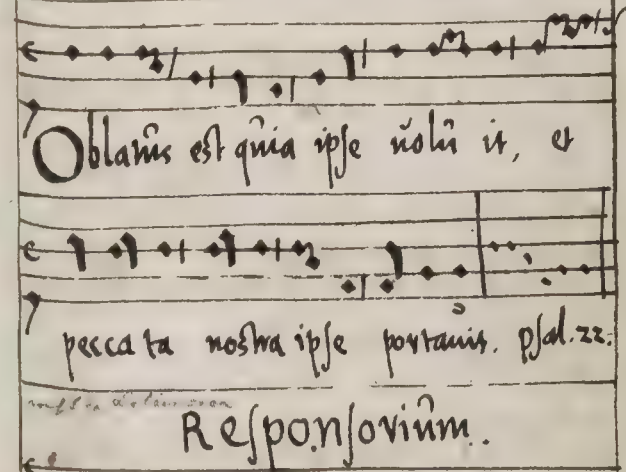 Oblatus est quia ipse uoluit, et
peccata nostra ipse portauit. psal. 22.
Responsorium.